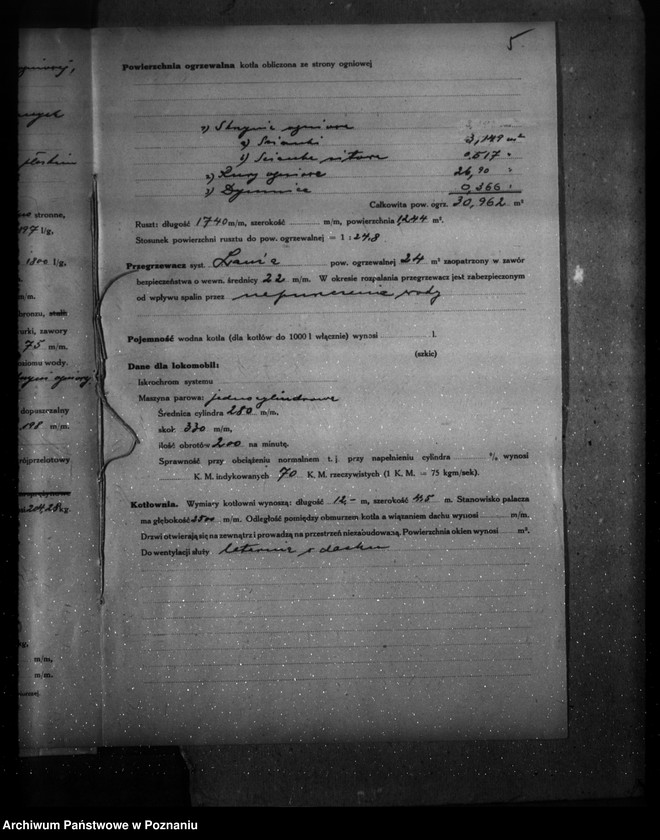 5.
Powierzchnia ogrzewalna kotła obliczona ze strony ogniowej
1) Skrzynia ogniowa
a) Ścianki 3,149 m²
b) Ścianka sitowa 0,517 "
2) Rury ogniowe 26,90 "
3) Dymnica 0,366 "
Całkowita pow. ogrz. 30,962 m²
Ruszt: długość 1740 m/m, szerokość m/m, powierzchnia 1,244 m².
Stosunek powierzchni rusztu do pow. ogrzewalnej = 1 : 24,8
Przegrzewacz syst. Lanza pow. ogrzewalnej 24 m² zaopatrzony w zawór
bezpieczeństwa o wewn. średnicy 22 m/m. W okresie rozpalania przegrzewacz jest zabezpieczonym
od wpływu spalin przez wody
Pojemność wodna kotła (dla kotłów do 1000 l włącznie) wynosi l.
(szkic)
Dane dla lokomobil:
Iskrochrom systemu
Maszyna parowa: jednocylindrowa
Średnica cylindra 280 m/m.
skok 330 m/m,
ilość obrotów 200 na minutę.
Sprawność przy obciążeniu normalnem t. j. przy napełnieniu cylindra % wynosi
K. M. indykowanych 70 K. M. rzeczywistych (1 K. M. = 75 kgm/sek).
Kotłownia. Wymiary kotłowni wynoszą: długość 12,– m, szerokość 4,5 m. Stanowisko palacza
ma głębokość 3500 m/m. Odległość pomiędzy obmurzem kotła a wiązaniem dachu wynosi m/m.
Drzwi otwierają się na zewnątrz i prowadzą na przestrzeń niezabudowaną. Powierzchnia okien wynosi m².
Do wentylacji służy w dachu
stronne,
197 l/g,
1300 l/g,
m/m.
bronzu, stali
rurki, zawory
75 m/m.
poziomu wody.
dopuszczalny
198 m/m.
trójprzelotowy
kg.
m/m,
m/m.
Archiwum Państwowe w Poznaniu